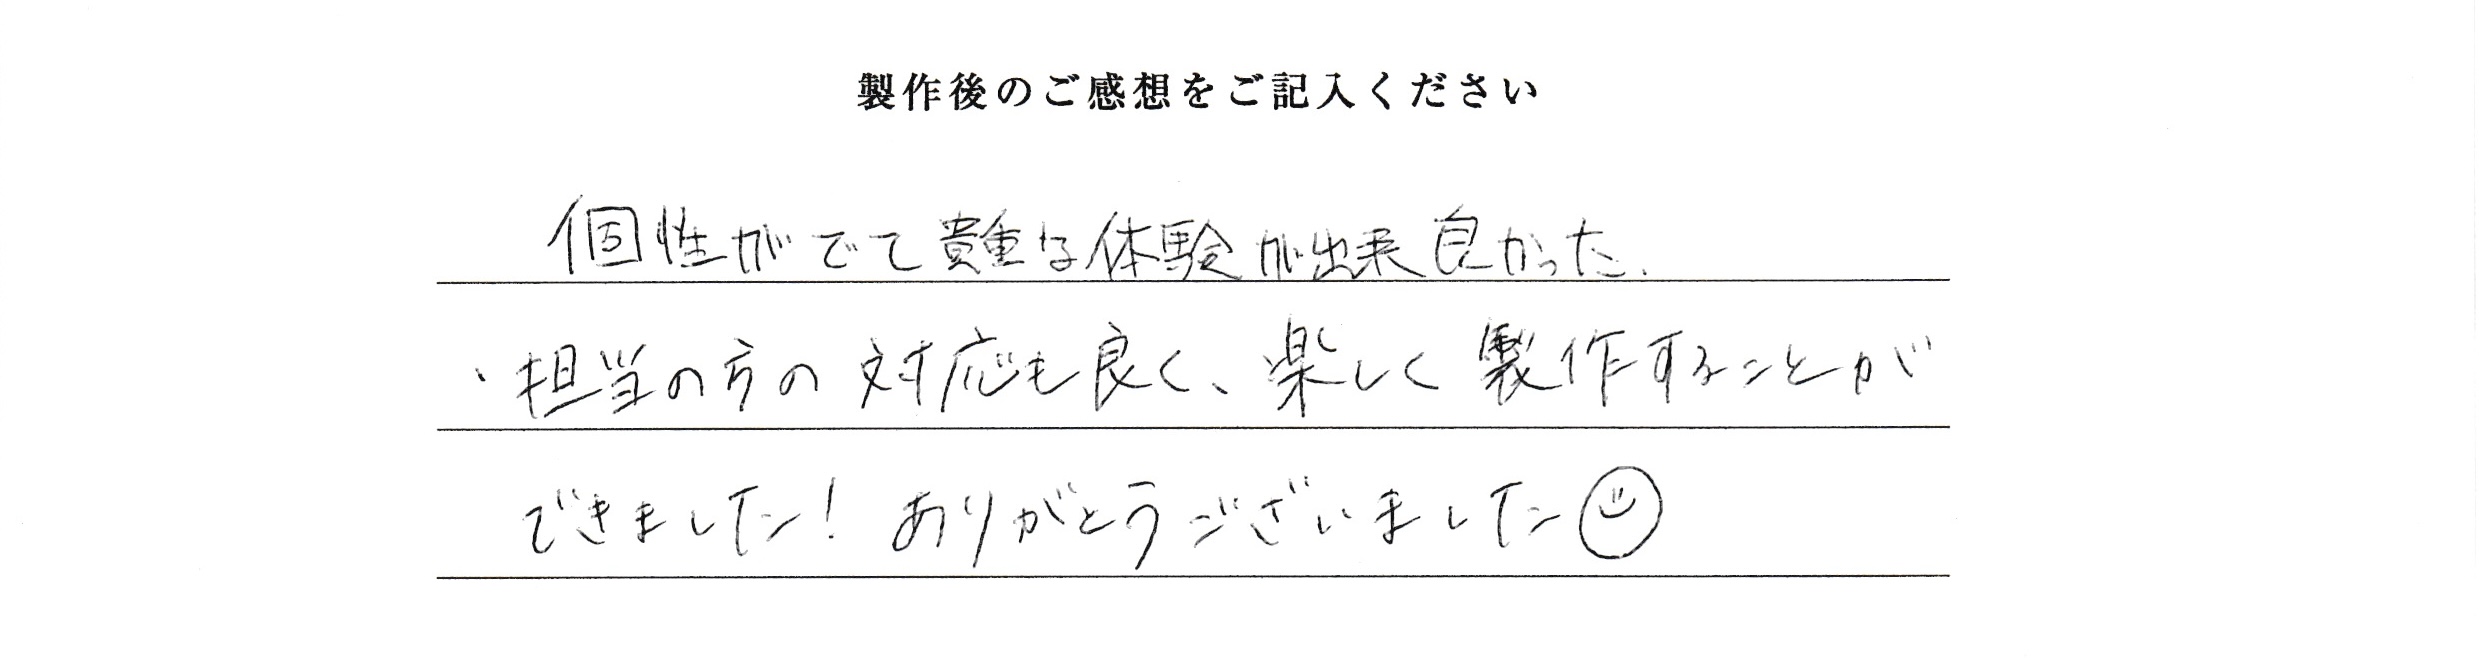 製作後のご感想をご記入ください
個性がでて貴重な体験が出来良かった.
・担当の方の対応も良く、楽しく製作することが
できました！ ありがとうございました☺